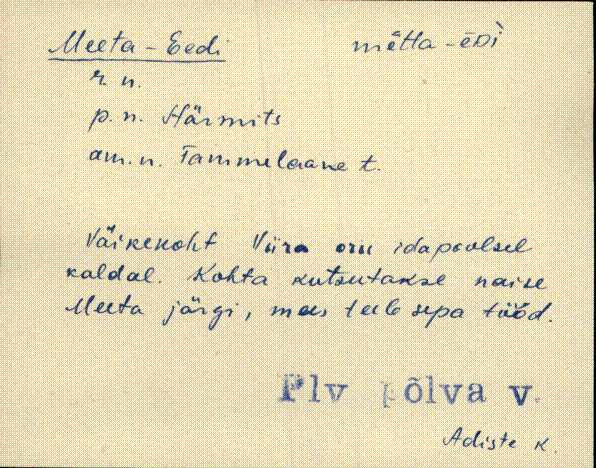 Meeta - Eedi mètta - èDì
r. n.
p. n. Härmits
am. n. Tammelaane t.
Väikekoht Viira oru idapoolsel
kaldal. Kohta kutsutakse naise
Meeta järgi, mees teeb sepa tööd.
Plv põlva v.
Adiste k.